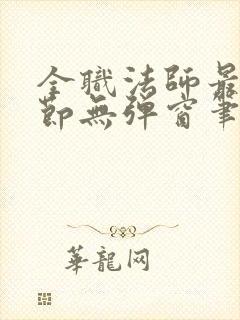 全職法師最
節無彈窗筆
華龍网